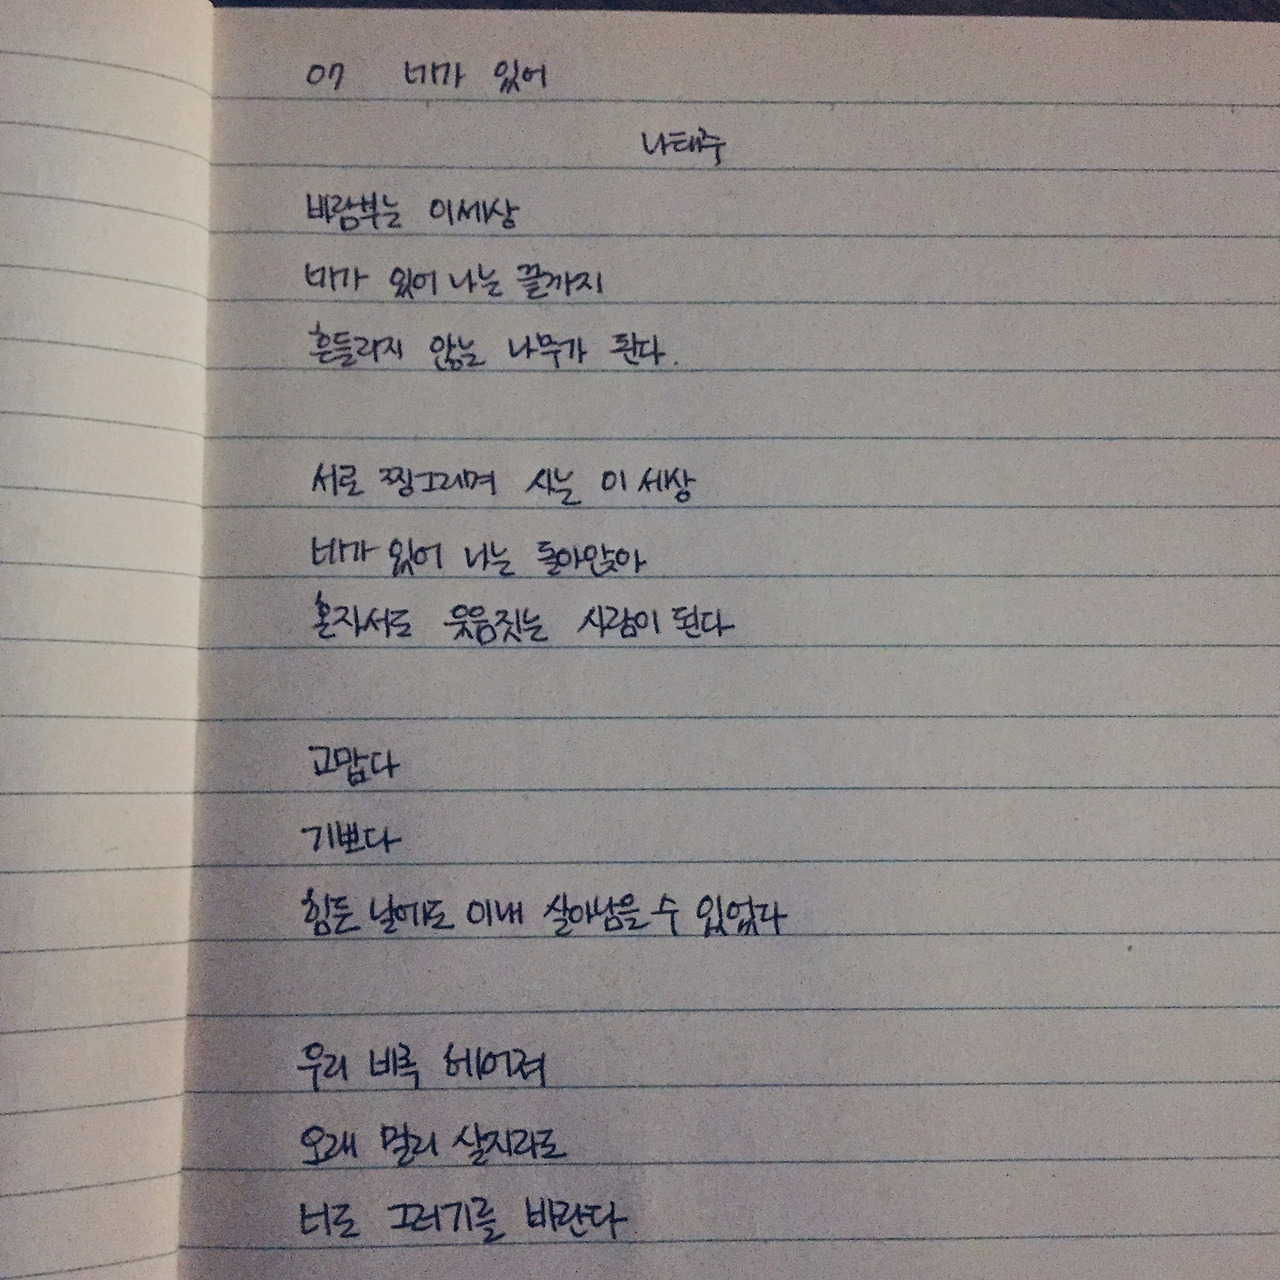 07 네가 있어
나태주
바람부는 이세상
네가 있어 나는 끝까지
흔들리지 않는 나무가 된다.
서로 찡그리며 사는 이 세상
네가 있어 나는 돌아앉아
혼자서도 웃음짓는 사람이 된다
고맙다
기쁘다
힘든 날에도 이내 살아남을 수 있었다
우리 비록 헤어져
오래 멀리 살지라도
너도 그러기를 바란다